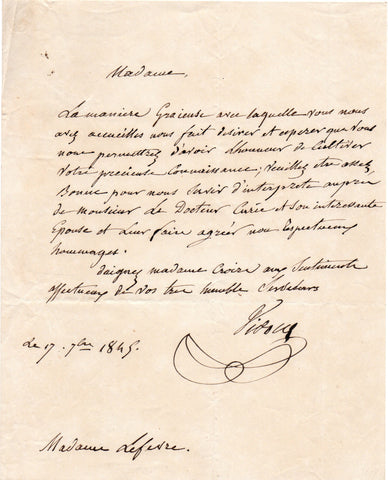 Madame,
La maniere Graieuse avec laquelle vous nous
avez accueilles nous fait desirer et esperer que vous
nous permettrez d'avoir Lhonneur de Cultiver
votre precieuse Connaissance; Veuillez être assez
Bonne pour nous Servir d'interprete aupres
de monsieur Le Docteur Curie et Son interessante
Epouse et Leur faire agréer nos respectueux
hommages.
daignez madame Croire aux Sentiments
affectueux de vos tres humble Serviteurs
Vidocq
Le 17. 7bre 1845.
Madame Lefevre.